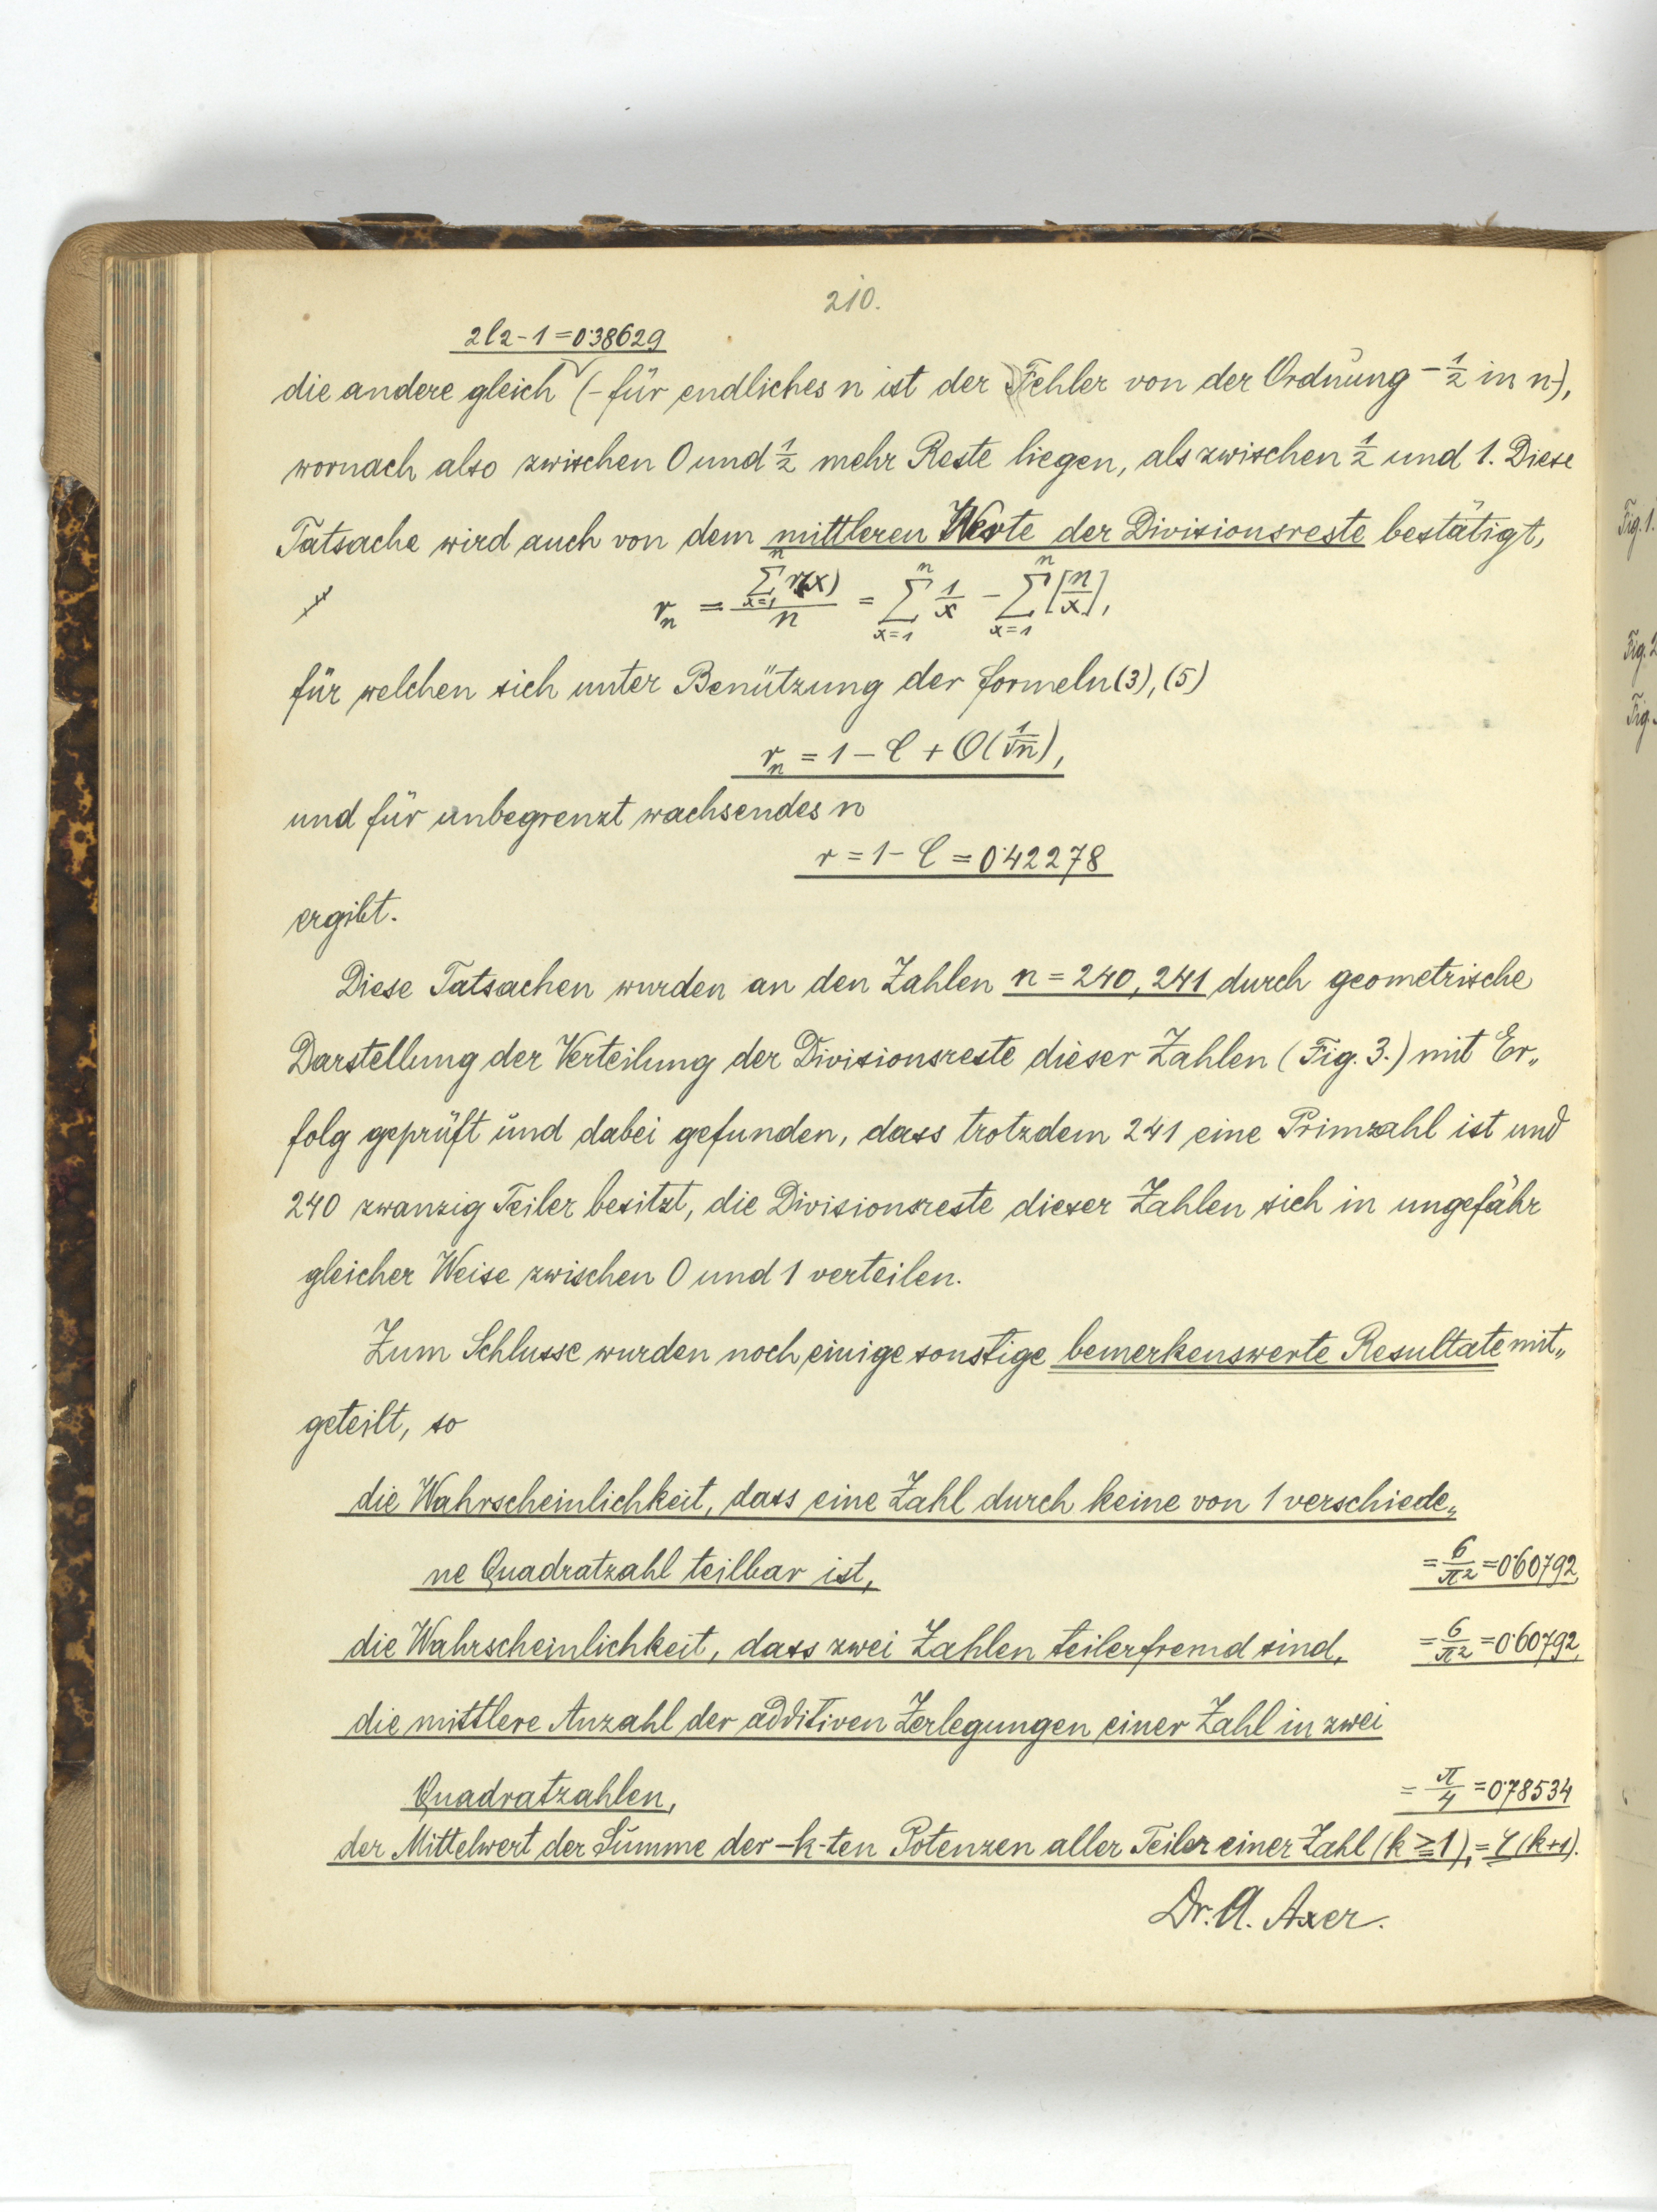 210.
2l2-1=0·38629
die andere gleich (-für endliches n ist der Fehler von der Ordnung -1/2 in n-),
wornach also zwischen 0 und 1/2 mehr Reste liegen, als zwischen 1/2 und 1. Diese
Tatsache wird auch von dem mittleren Werte der Divisionsreste bestätigt,
r_n = (∑_{x=1}^{n} r(x))/n = ∑_{x=1}^{n} 1/x - ∑_{x=1}^{n} [n/x],
für welchen sich unter Benützung der Formeln (3), (5)
r_n = 1 - C + O(1/√n),
und für unbegrenzt wachsendes n
r = 1 - C = 0·42278
ergibt.
Diese Tatsachen wurden an den Zahlen n = 240, 241 durch geometrische
Darstellung der Verteilung der Divisionsreste dieser Zahlen (Fig. 3.) mit Er„
folg geprüft und dabei gefunden, dass trotzdem 241 eine Primzahl ist und
240 zwanzig Teiler besitzt, die Divisionsreste dieser Zahlen sich in ungefähr
gleicher Weise zwischen 0 und 1 verteilen.
Zum Schlusse wurden noch einige sonstige bemerkenswerte Resultate mit„
geteilt, so
die Wahrscheinlichkeit, dass eine Zahl durch keine von 1 verschiede„
ne Quadratzahl teilbar ist, = 6/π² = 0·60792,
die Wahrscheinlichkeit, dass zwei Zahlen teilerfremd sind, = 6/π² = 0·60792,
die mittlere Anzahl der additiven Zerlegungen einer Zahl in zwei
Quadratzahlen, = π/4 = 0·78534
der Mittelwert der Summe der -k-ten Potenzen aller Teiler einer Zahl (k ≧ 1), = ζ(k+1).
Dr. A. Axer.
Fig. 1.
Fig. 2
Fig.